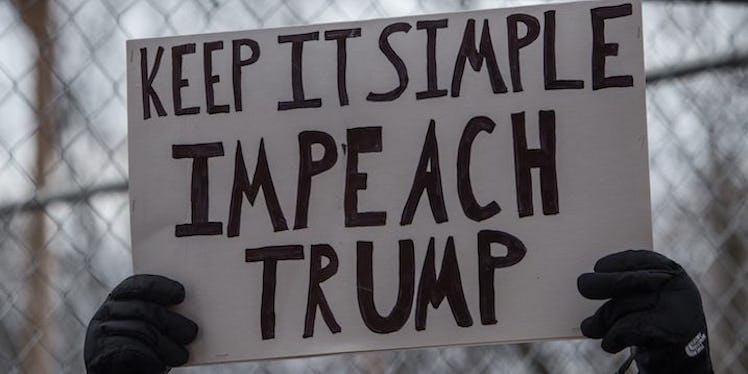 KEEP IT SIMPLE
IMPEACH
TRUMP